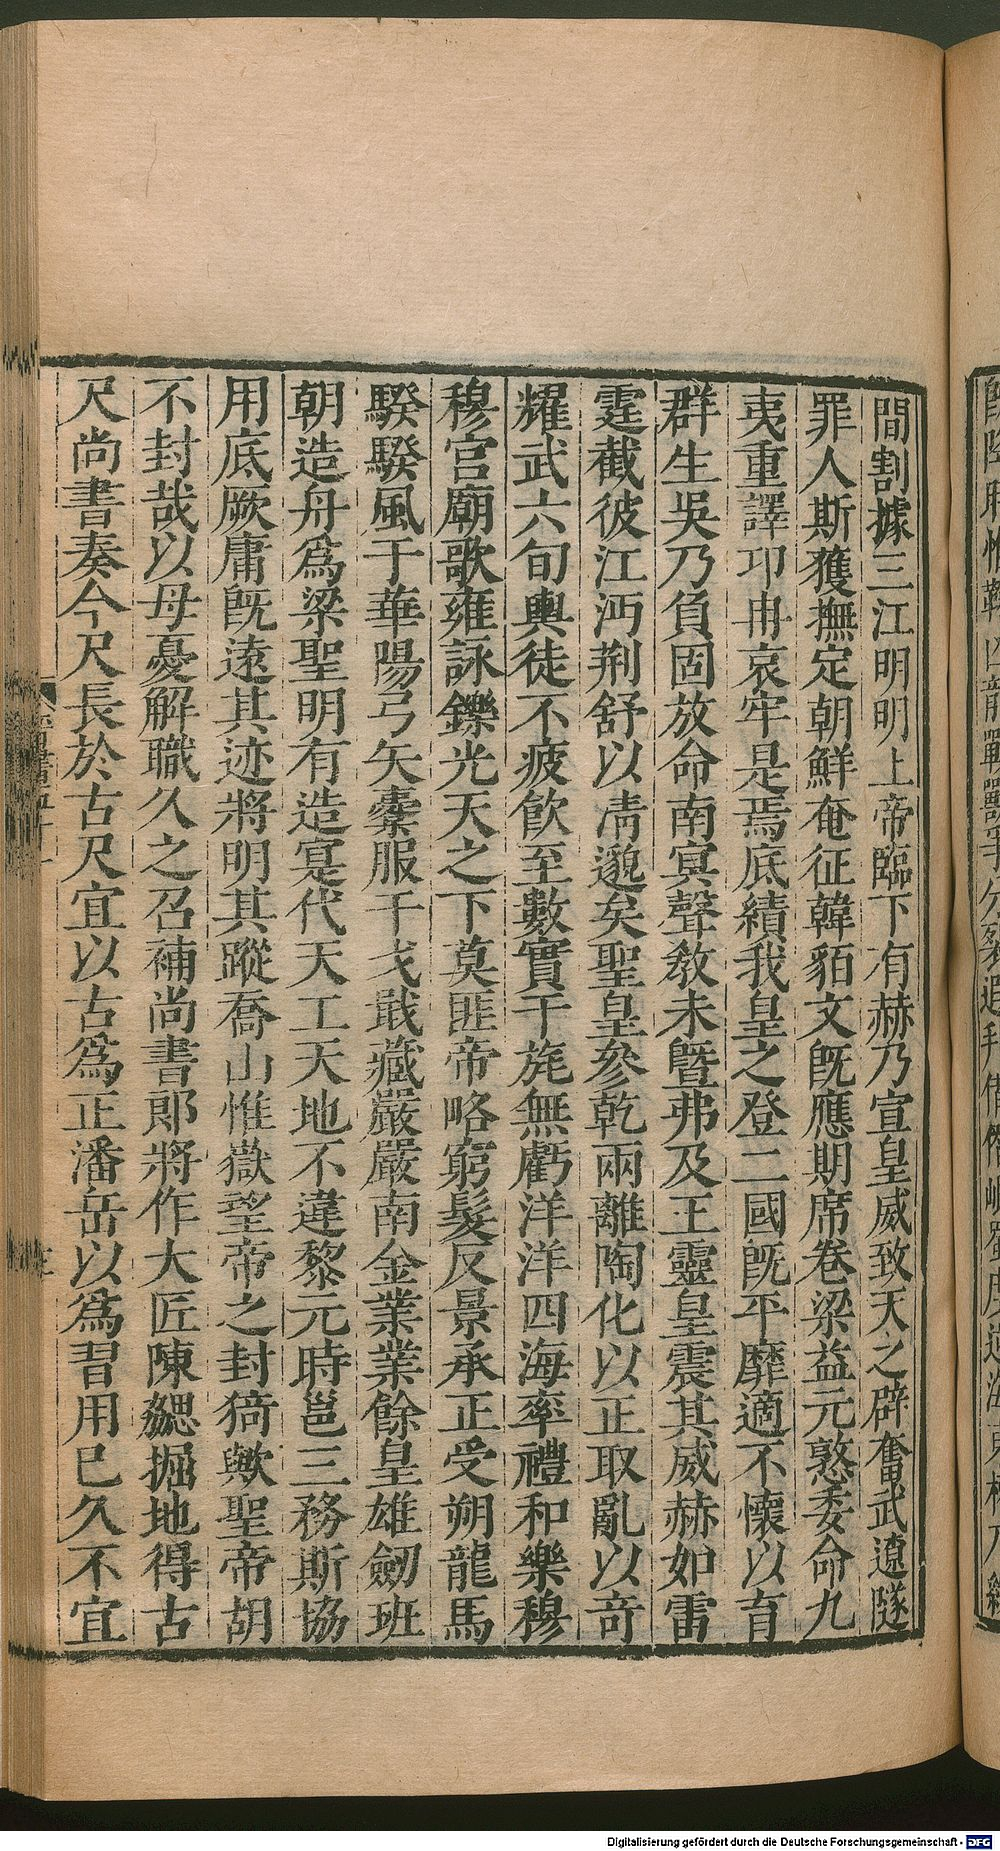 間割據三江明明上帝臨下有赫乃宣皇威致天之辟奮武遼隧
罪人斯獲撫定朝鮮奄征韓貊文旣應期席卷梁益元憝委命九
夷重譯卭冉哀牢是焉底績我皇之登二國旣平靡適不懷以育
群生吳乃負固放命南㝠聲敎未曁弗及王靈皇震其威赫如雷
霆截彼江沔荆舒以淸邈矣聖皇參乾兩離陶化以正取亂以竒
耀武六旬輿徒不疲飮至數實干旄無虧洋洋四海率禮和樂穆
穆宫廟歌雍詠鑠光天之下莫匪帝略窮髮反景承正受朔龍馬
騤騤風于華陽弓矢櫜服干戈戢藏嚴嚴南金業業餘皇雄劒班
朝造舟爲梁聖明有造寔代天工天地不違黎元時邕三務斯協
用底厥庸旣逺其迹將明其蹤喬山惟嶽望帝之封猗歟聖帝胡
不封哉以母憂解職久之召補尚書郎將作大匠陳勰掘地得古
尺尚書奏今尺長於古尺宜以古爲正潘岳以爲習用已久不宜
Digitalisierung gefördert durch die Deutsche Forschungsgemeinschaft - DFG